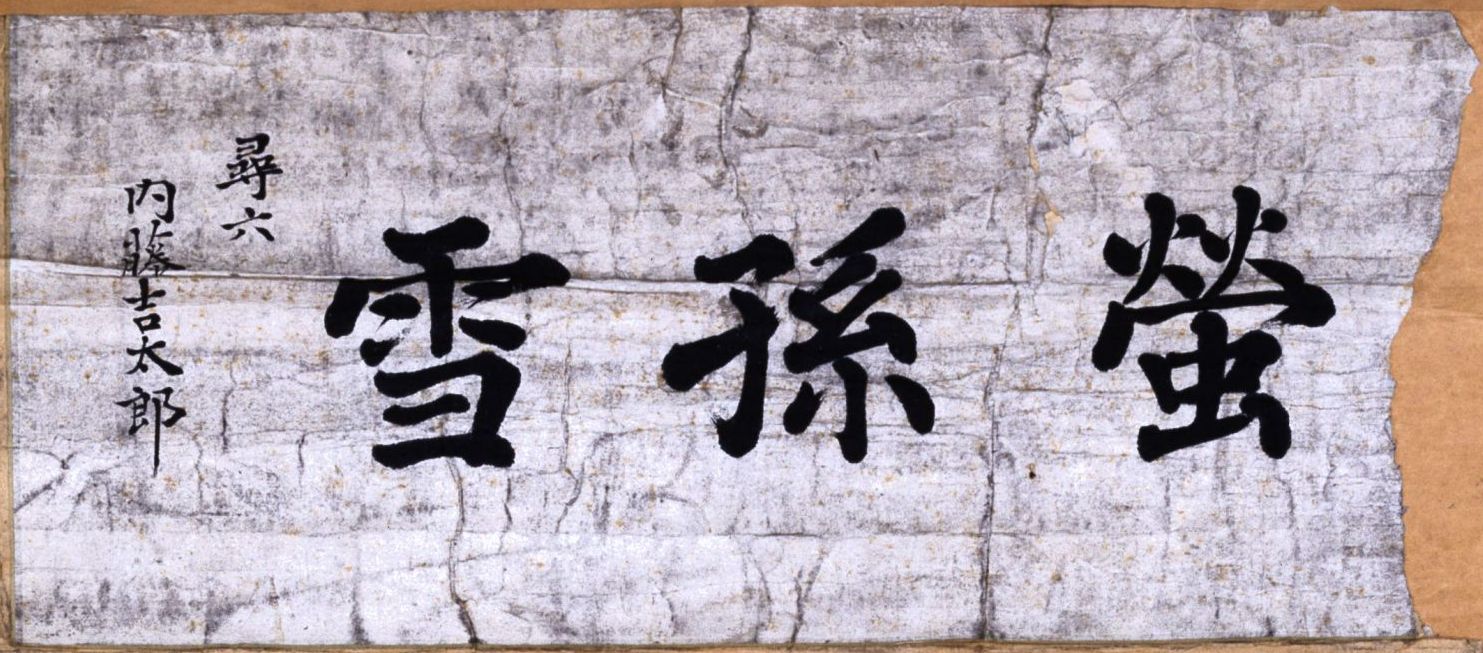 螢孫雪
尋六
内藤吉太郎